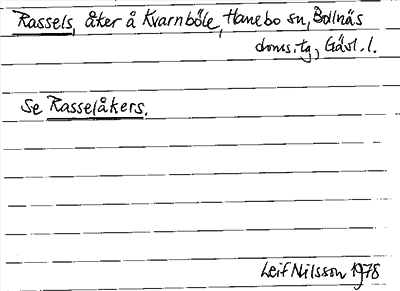 Rassels, åker å Kvarnböle, Hanebo sn, Bollnäs
doms.tg, Gävl. l.
Se Rasselåkers.
Leif Nilsson 1978